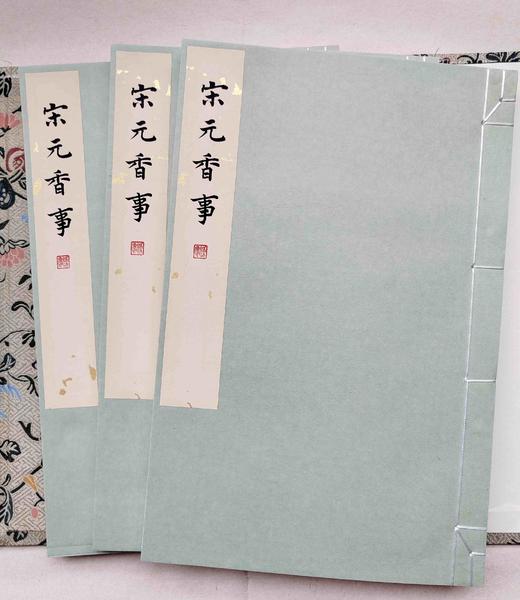 宋元香事
宋元香事
宋元香事